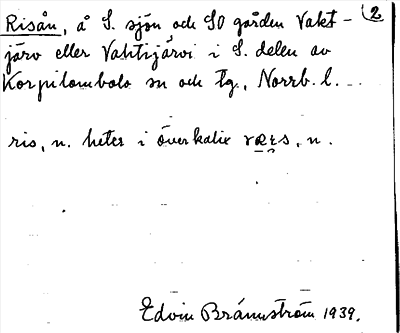 Risån, å S. sjön och SO gården Vakt- 2
järv eller Vahtijärvi i S. delen av
Korpilombolo sn och tg., Norrb. l.
ris, n. heter i överkalix
Edvin Brännström 1939.